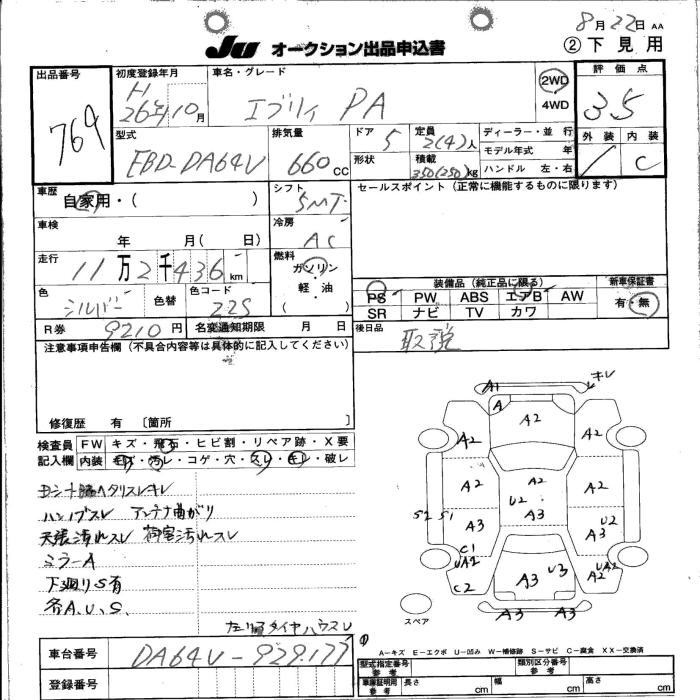 8月22日 AA
JU オークション出品申込書
② 下見用
出品番号
769
初度登録年月
H
26年10月
車名・グレード
エブリイ PA
2WD
4WD
評価点
3.5
外装 内装
C
型式
EBD-DA64V
排気量
660 CC
ドア
5
形状
定員
2(4)人
積載
350(250)kg
ディーラー・並行
モデル年式 年
ハンドル 左・右
車歴
自家用・( )
シフト
5MT
セールスポイント(正常に機能するものに限ります)
車検
年 月( 日)
冷房
AC
走行
11万2千436km
燃料
ガソリン・
軽・油
( )
色
シルバー
色替
色コード
Z2S
装備品(純正品に限る)
PS PW ABS エアB AW
SR ナビ TV カワ
新車保証書
有・無
R券
9210円
名変通知期限 月 日
後日品
取説
注意事項申告欄(不具合内容等は具体的に記入してください)
修復歴 有 〔箇所 〕
検査員
記入欄
FW キズ・飛石・ヒビ割・リペア跡・X要
内装 キズ・汚レ・コゲ・穴・スレ・キレ・破レ
ヨシナ脇ヘタリスレキレ
ハンドブスレ アンテナ曲がり
天張汚れスレ 荷室汚れスレ
ミラーA
下廻りS有
各A.U.S.
左リヤタイヤハウスU
A1 キレ
A
A2
A2 A2
A2 A2 A2
U2
S2 S1 A3 A3 U2
A3
C1
UA2
C2
A3 U3
UA2
A2
A3 A3
スペア
A−キズ E−エクボ U−凹み W−補修跡 S−サビ C−腐食 XX−交換済
車台番号
DA64V-929177
登録番号
型式指定番号
参考
類別区分番号
参考
車庫証明用
参考
長さ cm
幅 cm
高さ cm